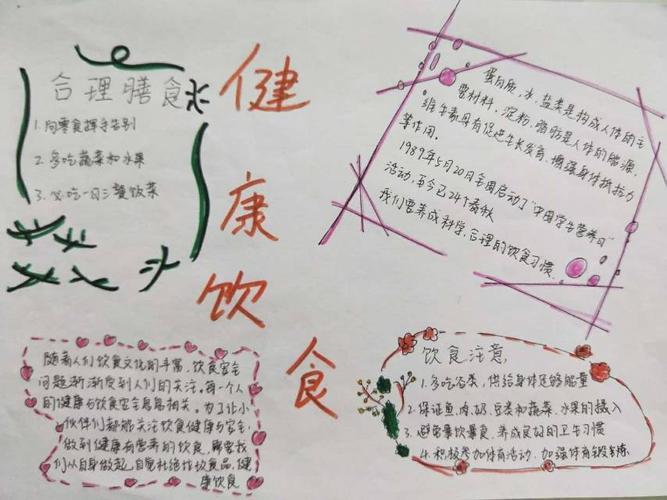 合理膳食
1.向零食挥手告别
2.多吃蔬菜和水果
3.必吃一日三餐饭菜
健康饮食
蛋白质、水、盐类是构成人体的主
要材料,淀粉、脂肪是人体的能源,
维生素具有促进生长发育、增强身体抵抗力
等作用。
1989年5月20日全国启动了“中国学生营养日”
活动,至今已24个春秋
我们要养成科学、合理的饮食习惯
随着人们饮食文化的丰富,饮食安全
问题渐渐受到人们的关注。每一个人
的健康与饮食安全息息相关。为了让小
伙伴们都能关注饮食健康与安全,
做到健康有营养的饮食,需要我
们从自身做起,自觉杜绝垃圾食品,健
康饮食
饮食注意,
1.多吃谷类,供给身体足够能量
2.保证鱼、肉、奶、豆类和蔬菜、水果的摄入
3.避免暴饮暴食,养成良好的卫生习惯
4.积极参加体育活动,加强体育锻炼